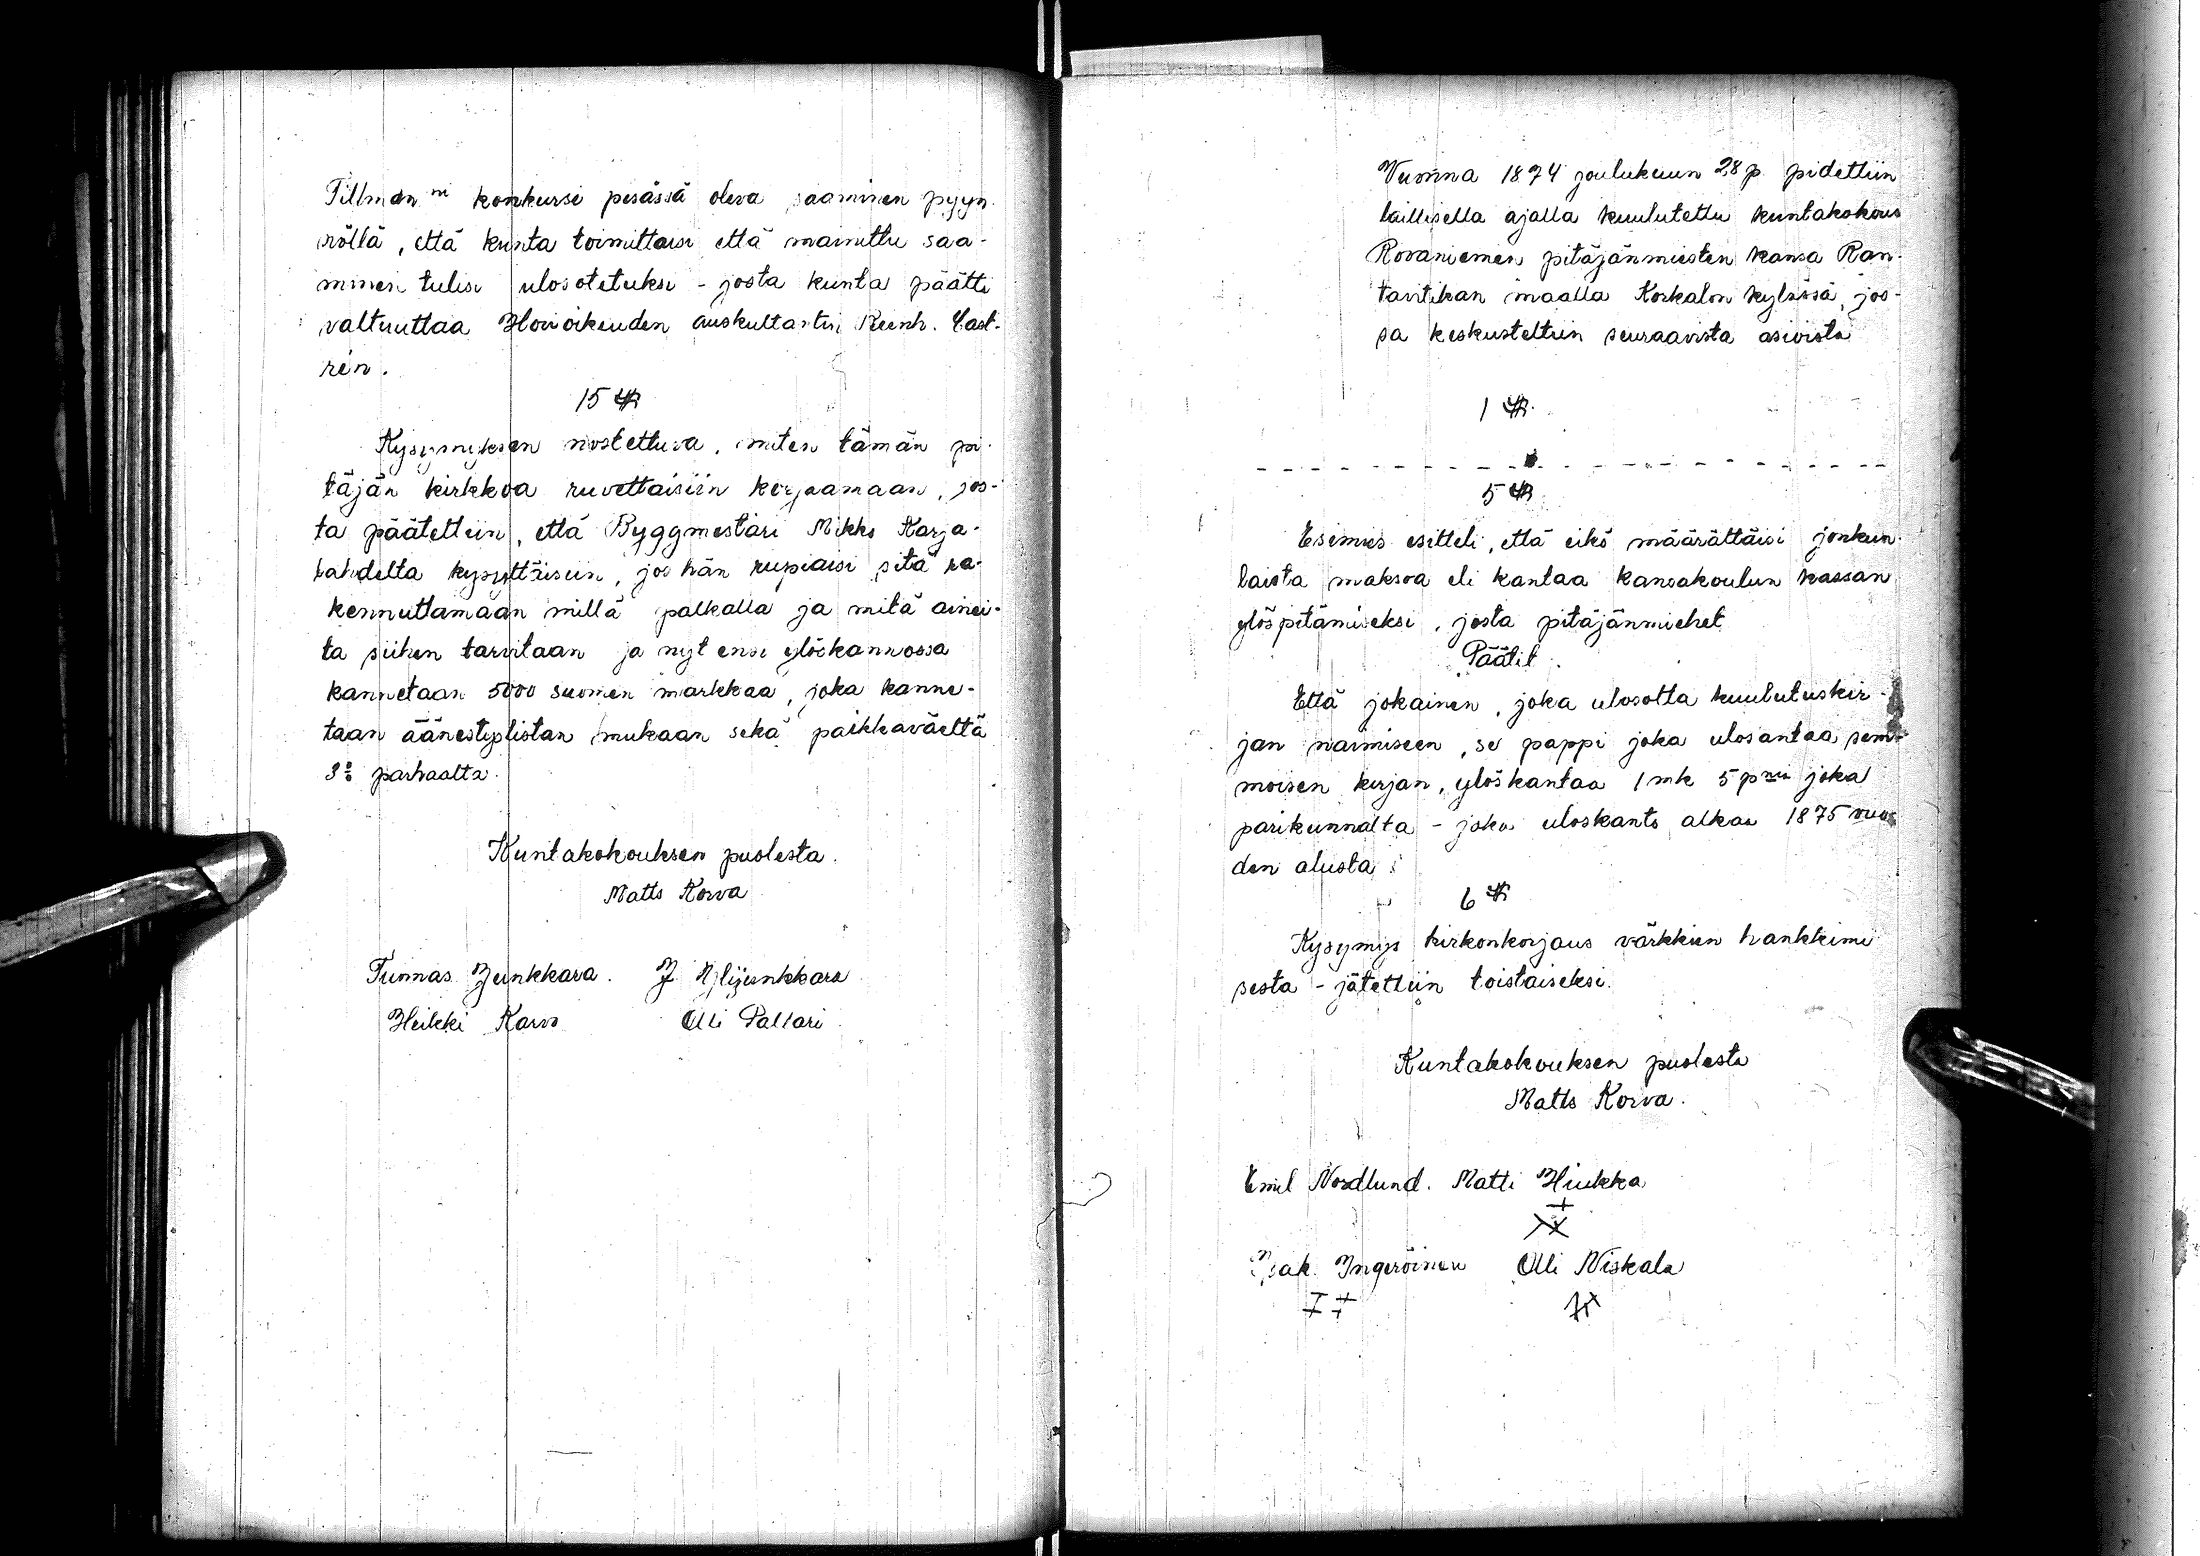 Tillman ni konkursi pesässä oleva saaminen pyyn-
nöllä, että kunta toimittaisi että mainittu saa-
minen tulisi ulosotetuksi - josta kunta päätti
valtuuttaa Hovioikeuden auskultantin Reinh. Cast-
rén.
15 §
Kysymyksen nostettua, miten tämän pi-
täjän kirkkoa ruvettaisiin korjaamaan, jos-
ta päätettiin, että Byggmestari Mikko Karja-
lahdelta kysyttäisiin, jos hän rupiaisi sitä ra-
kennuttamaan millä palkalla ja mitä ainei-
ta siihen tarvitaan ja nyt ensi ylöskannossa
kannetaan 5000 suomen markkaa, joka kanne-
taan äänestyslistan mukaan sekä paikkaväeltä
parhaalta.
Kuntakokouksen puolesta.
Matts Korva
Tuomas Junkkara. J. Ylijunkkara
Heikki Karvo Olli Pallari
Vuonna 1874 joulukuun 28 p. pidettiin
laillisella ajalla kuulutettu kuntakokous
Rovaniemen pitäjänmiesten kansa Ran-
tavitikan maalla Korkalon kylässä, jos-
sa keskusteltiin seuraavista asioista
1 §.
5 §
Esimies esitteli, että eikö määrättäisi jonkun-
laista maksoa eli kantaa kansakoulun kassan
ylöspitämiseksi, josta pitäjänmiehet
Päätit.
Että jokainen, joka ulosotta kuulutuskir-
jan naimiseen, se pappi joka ulosantaa sem-
moisen kirjan, ylöskantaa 1 mk 5 pniä joka
parikunnalta - joka uloskanto alkaa 1875 vuo-
den alusta.
6 §
Kysymys kirkonkorjaus värkkien hankkimi
sesta - jätettiin toistaiseksi.
Kuntakokouksen puolesta
Matts Korva.
Emil Nordlund. Matti Hiukka
Isak Ingeröinen Olli Niskala